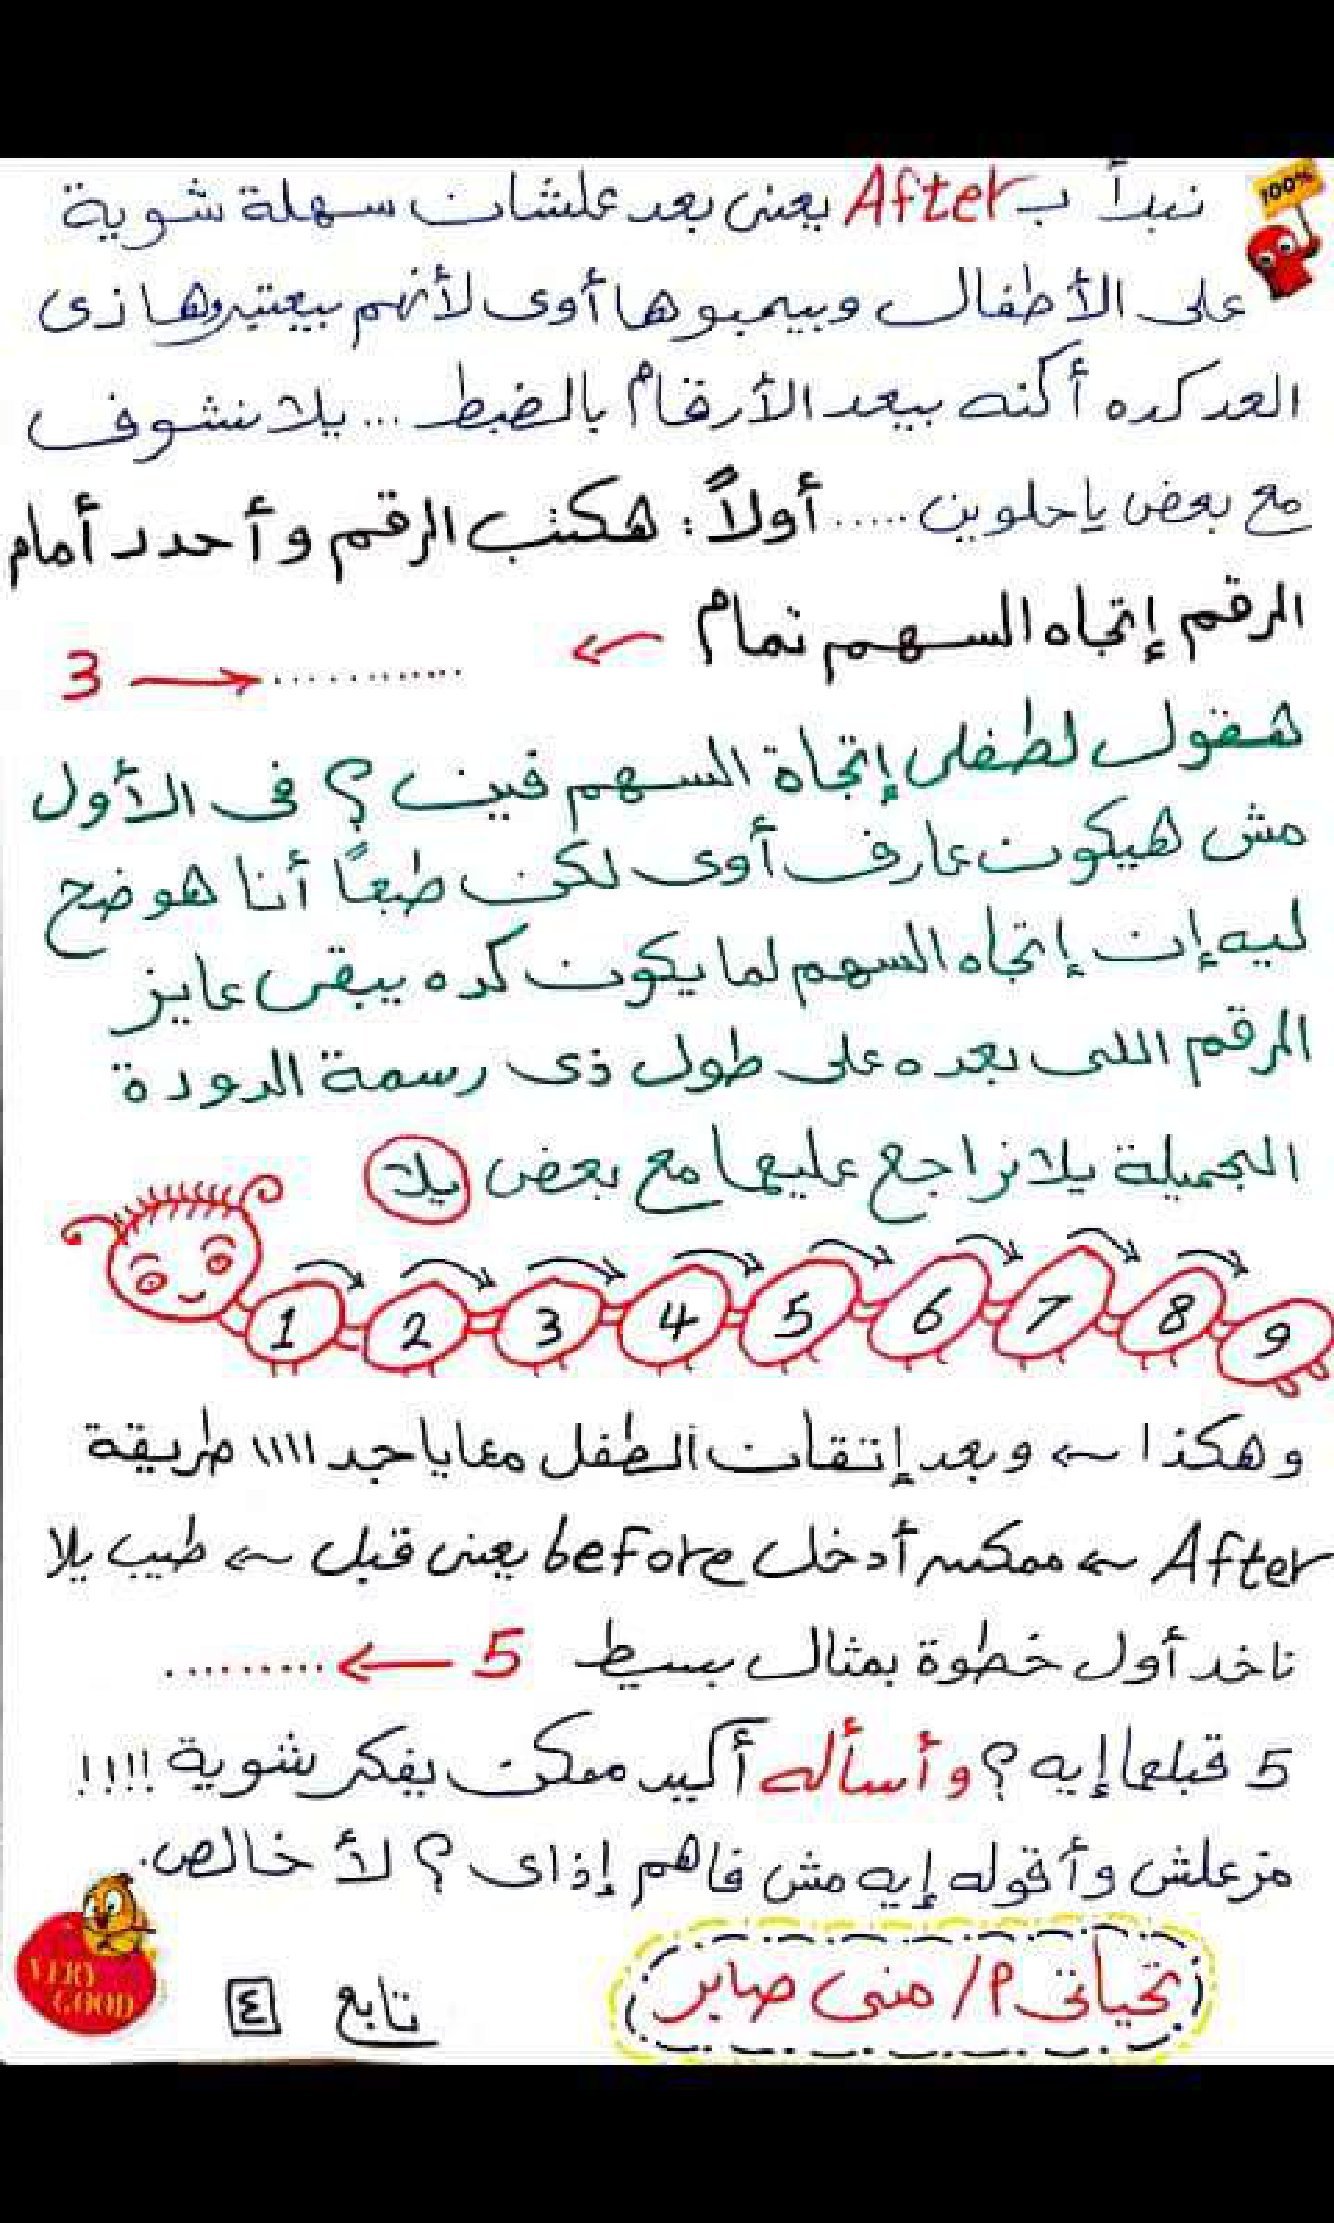 100%
نبدأ ب After يعنى بعد علشان سهلة شوية
على الأطفال وبيحبوها أوى لأنهم بيعتبروها زى
العد كده أكنه بيعد الأرقام بالضبط ... يلا نشوف
مع بعض ياحلوين ..... أولاً: هكتب الرقم وأحدد أمام
الرقم إتجاه السهم تمام ←
3 → ............
هنقول لطفلى إتجاة السهم فين ؟ فى الأول
مش هيكون عارف أوى لكن طبعاً أنا هوضح
ليه إن إتجاه السهم لما يكون كده يبقى عايز
الرقم اللى بعده على طول ذى رسمة الدودة
الجميلة يلا نراجع عليها مع بعض يلا
1 2 3 4 5 6 7 8 9
وهكذا ← وبعد إتقان الطفل معايا جداااا طريقة
After ← ممكن أدخل before يعنى قبل ← طيب يلا
ناخد أول خطوة بمثال بسيط 5 ← .........
5 قبلها إيه ؟ وأسأله أكيد ممكن يفكر شوية !!!!
مزعلش وأقوله إيه مش فاهم إذاى ؟ لأ خالص.
تحياتى م/ منى صابر
تابع ٤
VERY GOOD